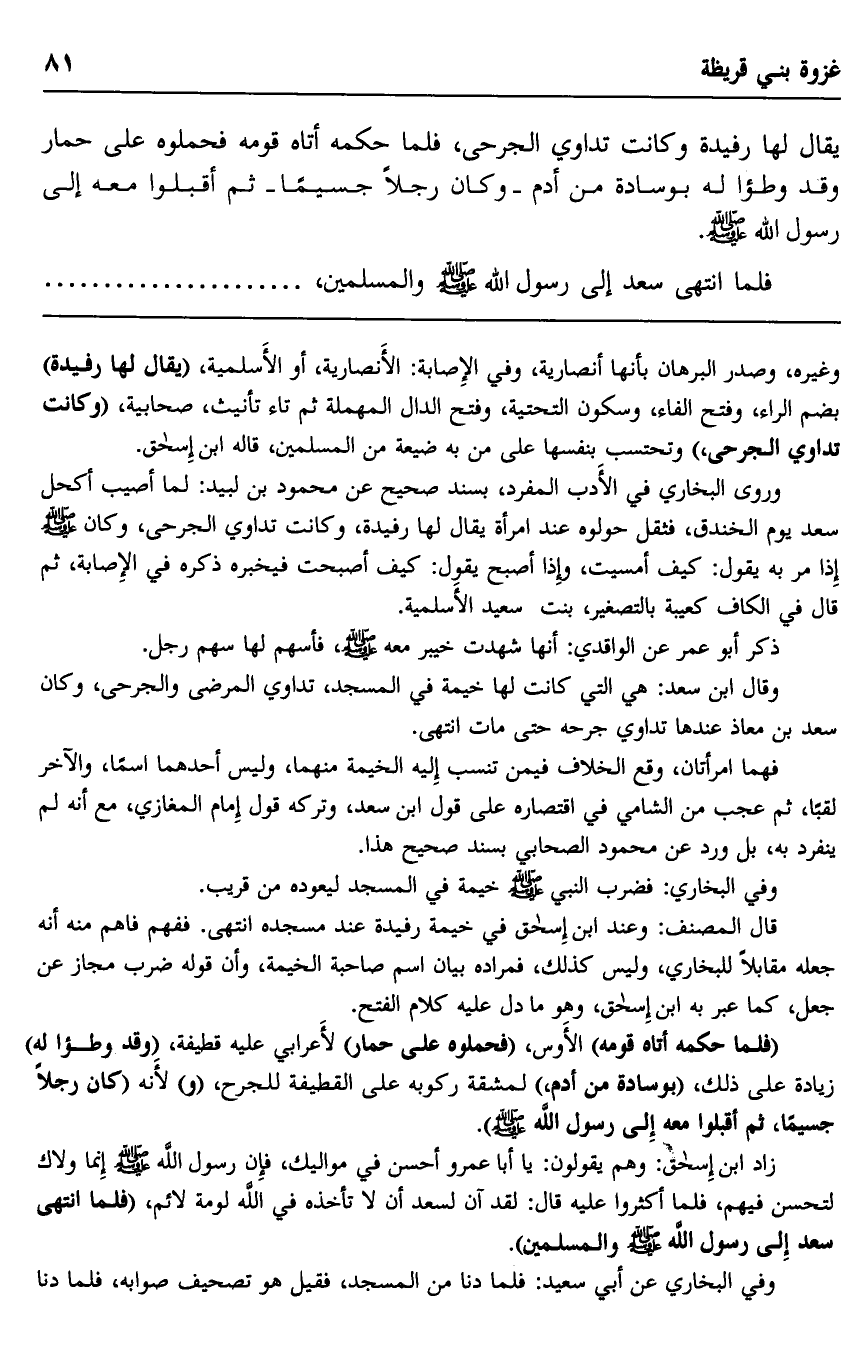 غزوة بنـي قريظة ٨١
يقال لها رفيدة وكانت تداوي الـجرحى، فلـما حكمه أتاه قومه فحملوه على حمار
وقـد وطـؤا لـه بـوسـادة مـن أدم ـ وكـان رجـلاً جـسـيـمًـا ـ ثـم أقـبـلـوا مـعـه إلـى
رسول الله ﷺ.
فلـما انتهى سعد إلى رسول الله ﷺ والـمسلـمين، ......................
وغيره، وصدر البرهان بأنها أنصارية، وفي الإِصابة: الأَنصارية، أو الأَسلـمية، (يقال لها رفـيدة)
بضم الراء، وفتح الفاء، وسكون التحتية، وفتح الدال الـمهملة ثم تاء تأنيث، صحابية، (وكانت
تداوي الـجرحى،) وتـحتسب بنفسها على من به ضيعة من الـمسلـمين، قاله ابن إِسحٰق.
وروى البخاري في الأَدب الـمفرد، بسند صحيح عن مـحمود بن لبيد: لـما أصيب أكحل
سعد يوم الـخندق، فثقل حولوه عند امرأة يقال لها رفيدة، وكانت تداوي الـجرحى، وكان ﷺ
إِذا مر به يقول: كيف أمسيت، وإِذا أصبح يقول: كيف أصبحت فيخبره ذكره في الإِصابة، ثم
قال في الكاف كعيبة بالتصغير، بنت سعيد الأَسلمية.
ذكر أبو عمر عن الواقدي: أنها شهدت خيبر معه ﷺ، فأسهم لها سهم رجل.
وقال ابن سعد: هي التي كانت لها خيمة في الـمسجد، تداوي الـمرضى والـجرحى، وكان
سعد بن معاذ عندها تداوي جرحه حتى مات انتهى.
فهما امرأتان، وقع الـخلاف فيمن تنسب إِليه الـخيمة منهما، وليس أحدهما اسمًا، والآخر
لقبًا، ثم عجب من الشامي في اقتصاره على قول ابن سعد، وتركه قول إِمام الـمغازي، مع أنه لـم
ينفرد به، بل ورد عن مـحمود الصحابي بسند صحيح هذا.
وفي البخاري: فضرب النبي ﷺ خيمة في الـمسجد ليعوده من قريب.
قال الـمصنف: وعند ابن إِسحٰق في خيمة رفيدة عند مسجده انتهى. ففهم فاهم منه أنه
جعله مقابلاً للبخاري، وليس كذلك، فمراده بيان اسم صاحبة الـخيمة، وأن قوله ضرب مجاز عن
جعل، كما عبر به ابن إِسحٰق، وهو ما دل عليه كلام الفتح.
(فلـما حكمه أتاه قومه) الأَوس، (فحملوه علـى حمار) لأَعرابي عليه قطيفة، (وقد وطــؤا له)
زيادة على ذلك، (بوسادة من أدم،) لـمشقة ركوبه على القطيفة للـجرح، (و) لأَنه (كان رجلاً
جسيمًا، ثم أقبلوا معه إِلـى رسول اللَّه ﷺ).
زاد ابن إِسحٰق: وهم يقولون: يا أبا عمرو أحسن في مواليك، فإِن رسول اللَّه ﷺ إِنما ولاك
لتحسن فيهم، فلما أكثروا عليه قال: لقد آن لسعد أن لا تأخذه في اللَّه لومة لائم، (فلـما انتهى
سعد إِلـى رسول اللَّه ﷺ والـمسلـمين).
وفي البخاري عن أبي سعيد: فلما دنا من الـمسجد، فقيل هو تصحيف صوابه، فلما دنا